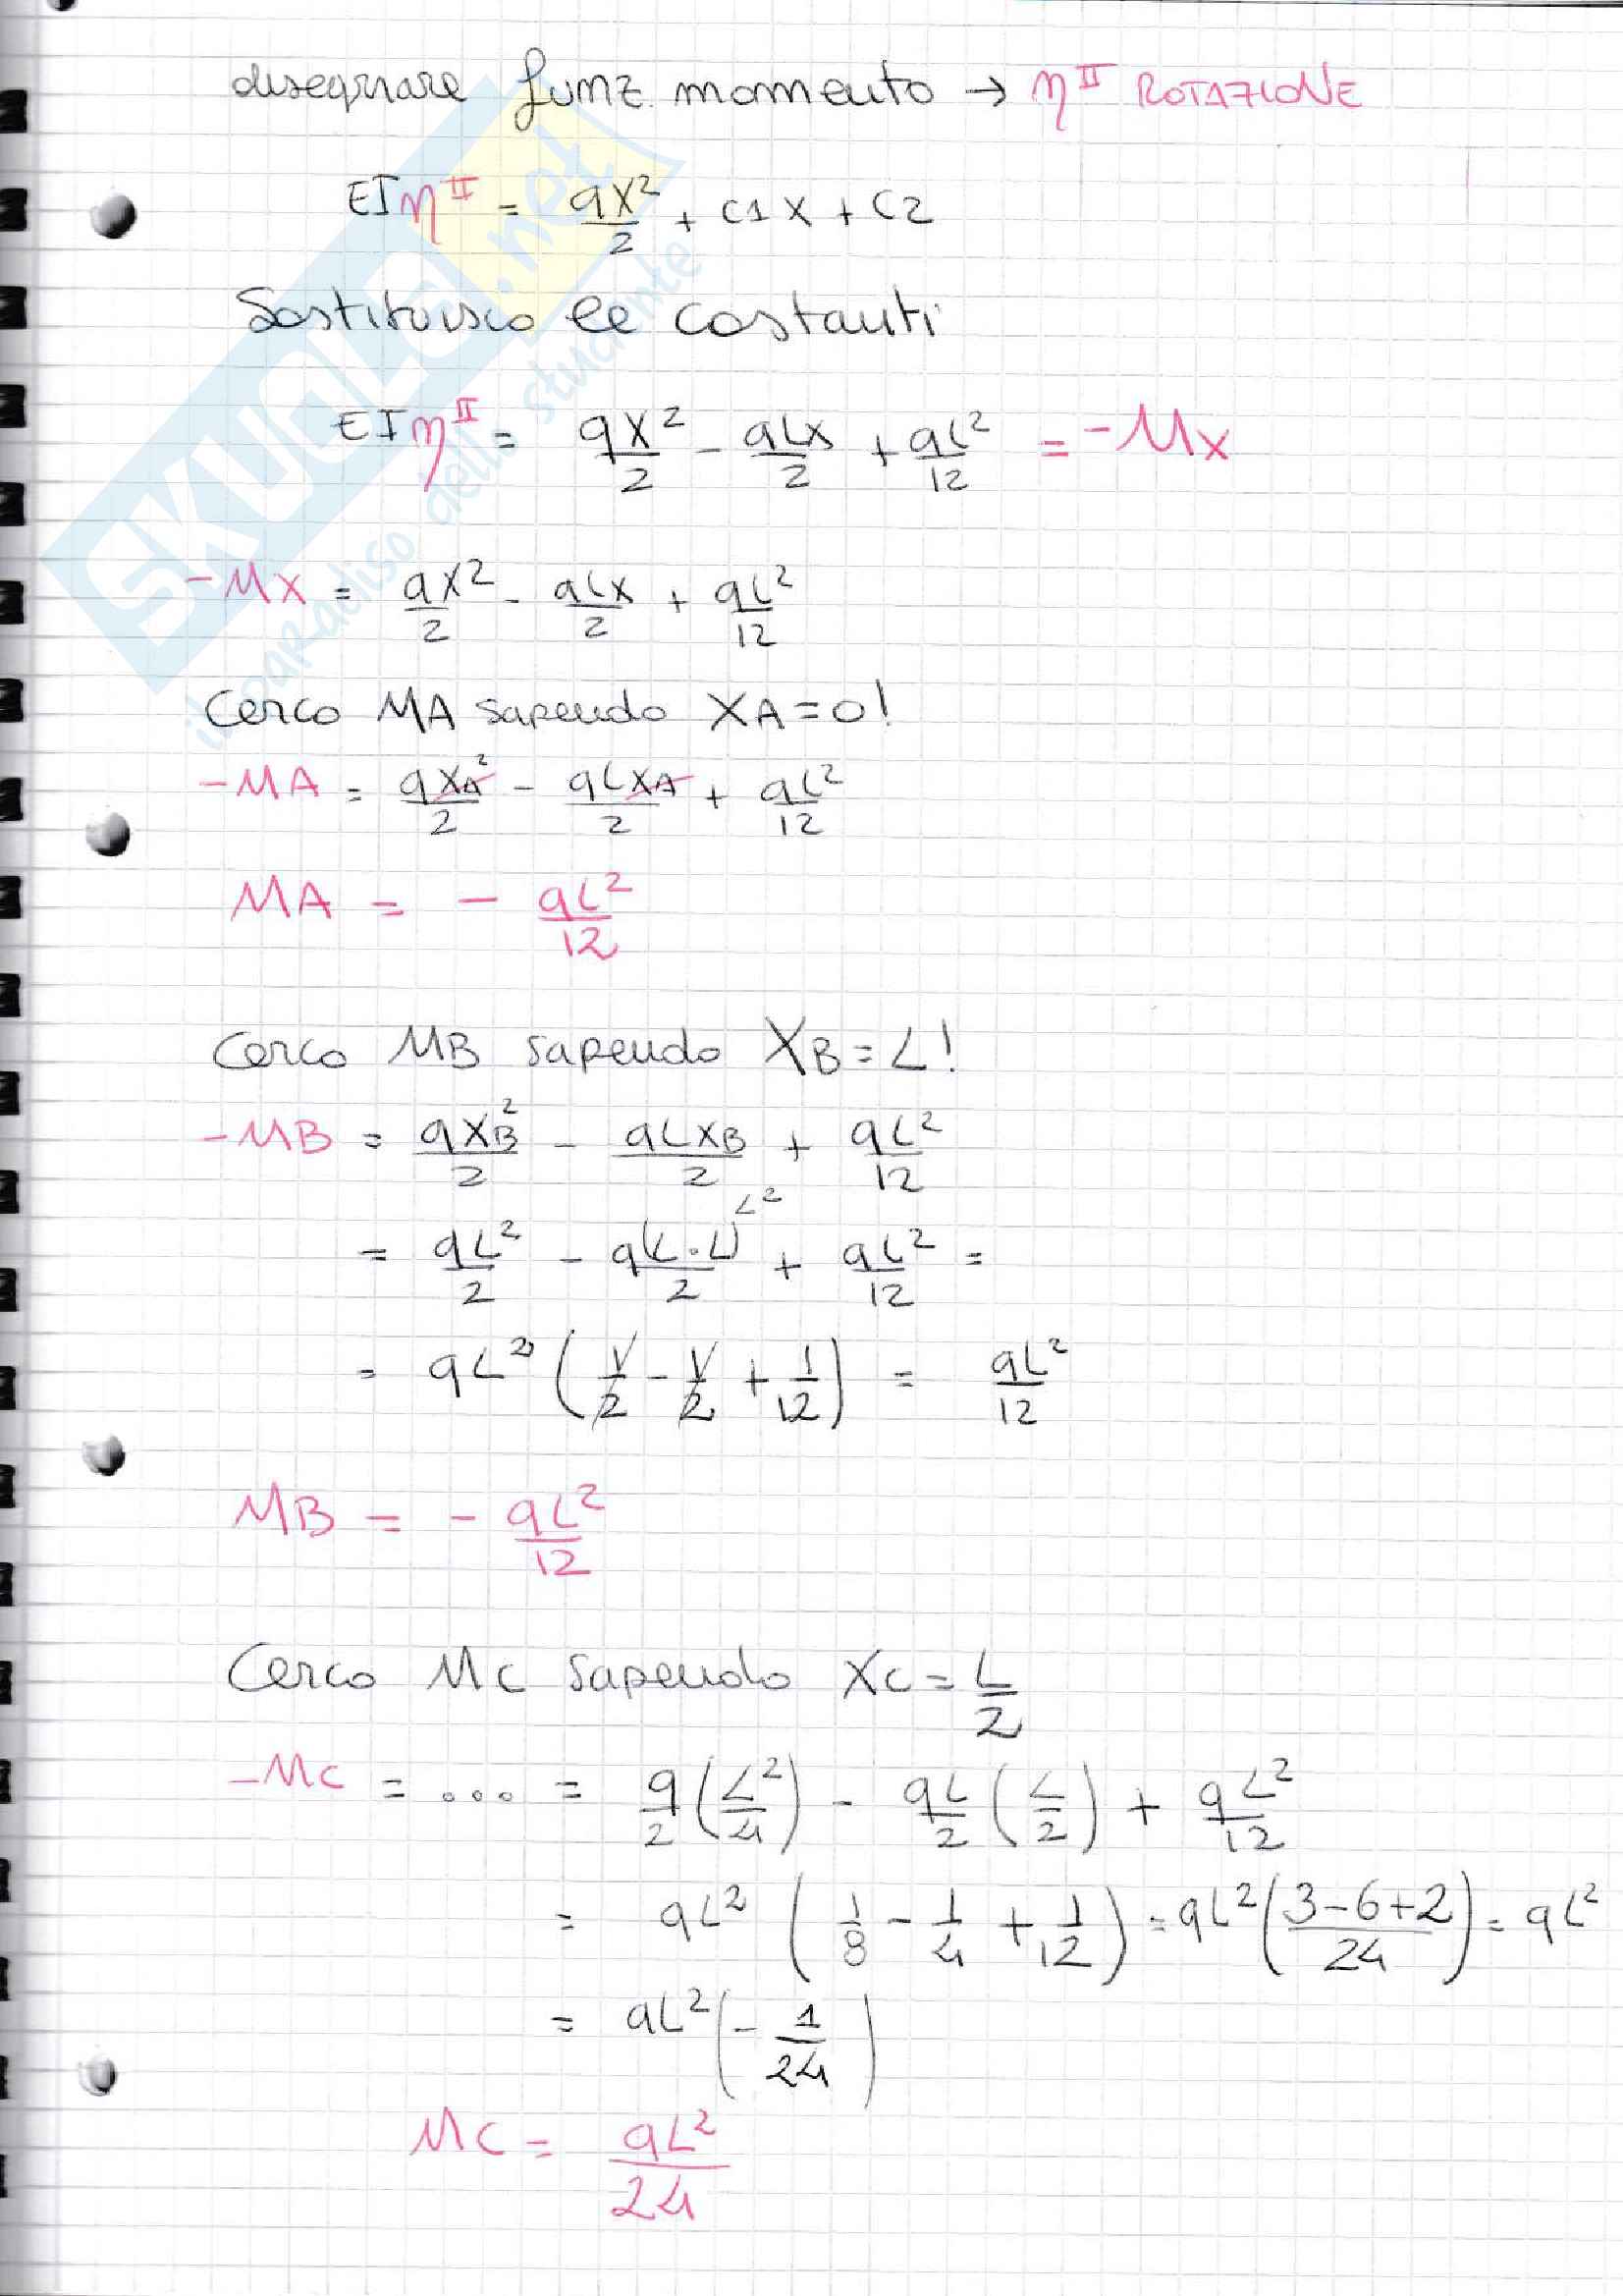 disegnare funz. momento → η^II ROTAZIONE
EIη^II = qx²/2 + C1x + C2
Sostituisco le costanti
EIη^II = qx²/2 - qLx/2 + qL²/12 = -Mx
-Mx = qx²/2 - qLx/2 + qL²/12
Cerco MA sapendo XA=0!
-MA = qXA²/2 - qLXA/2 + qL²/12
MA = - qL²/12
Cerco MB sapendo XB=L!
-MB = qXB²/2 - qLXB/2 + qL²/12
L²
= qL²/2 - q(L·L)/2 + qL²/12 =
= qL² (1/2 - 1/2 + 1/12) = qL²/12
MB = - qL²/12
Cerco MC sapendo XC = L/2
-MC = ... = q/2 (L²/4) - qL/2 (L/2) + qL²/12
= qL² (1/8 - 1/4 + 1/12) = qL² (3-6+2/24) = qL²
= qL² (- 1/24)
MC = qL²/24
SKUOLA.net
il paradiso dello studente